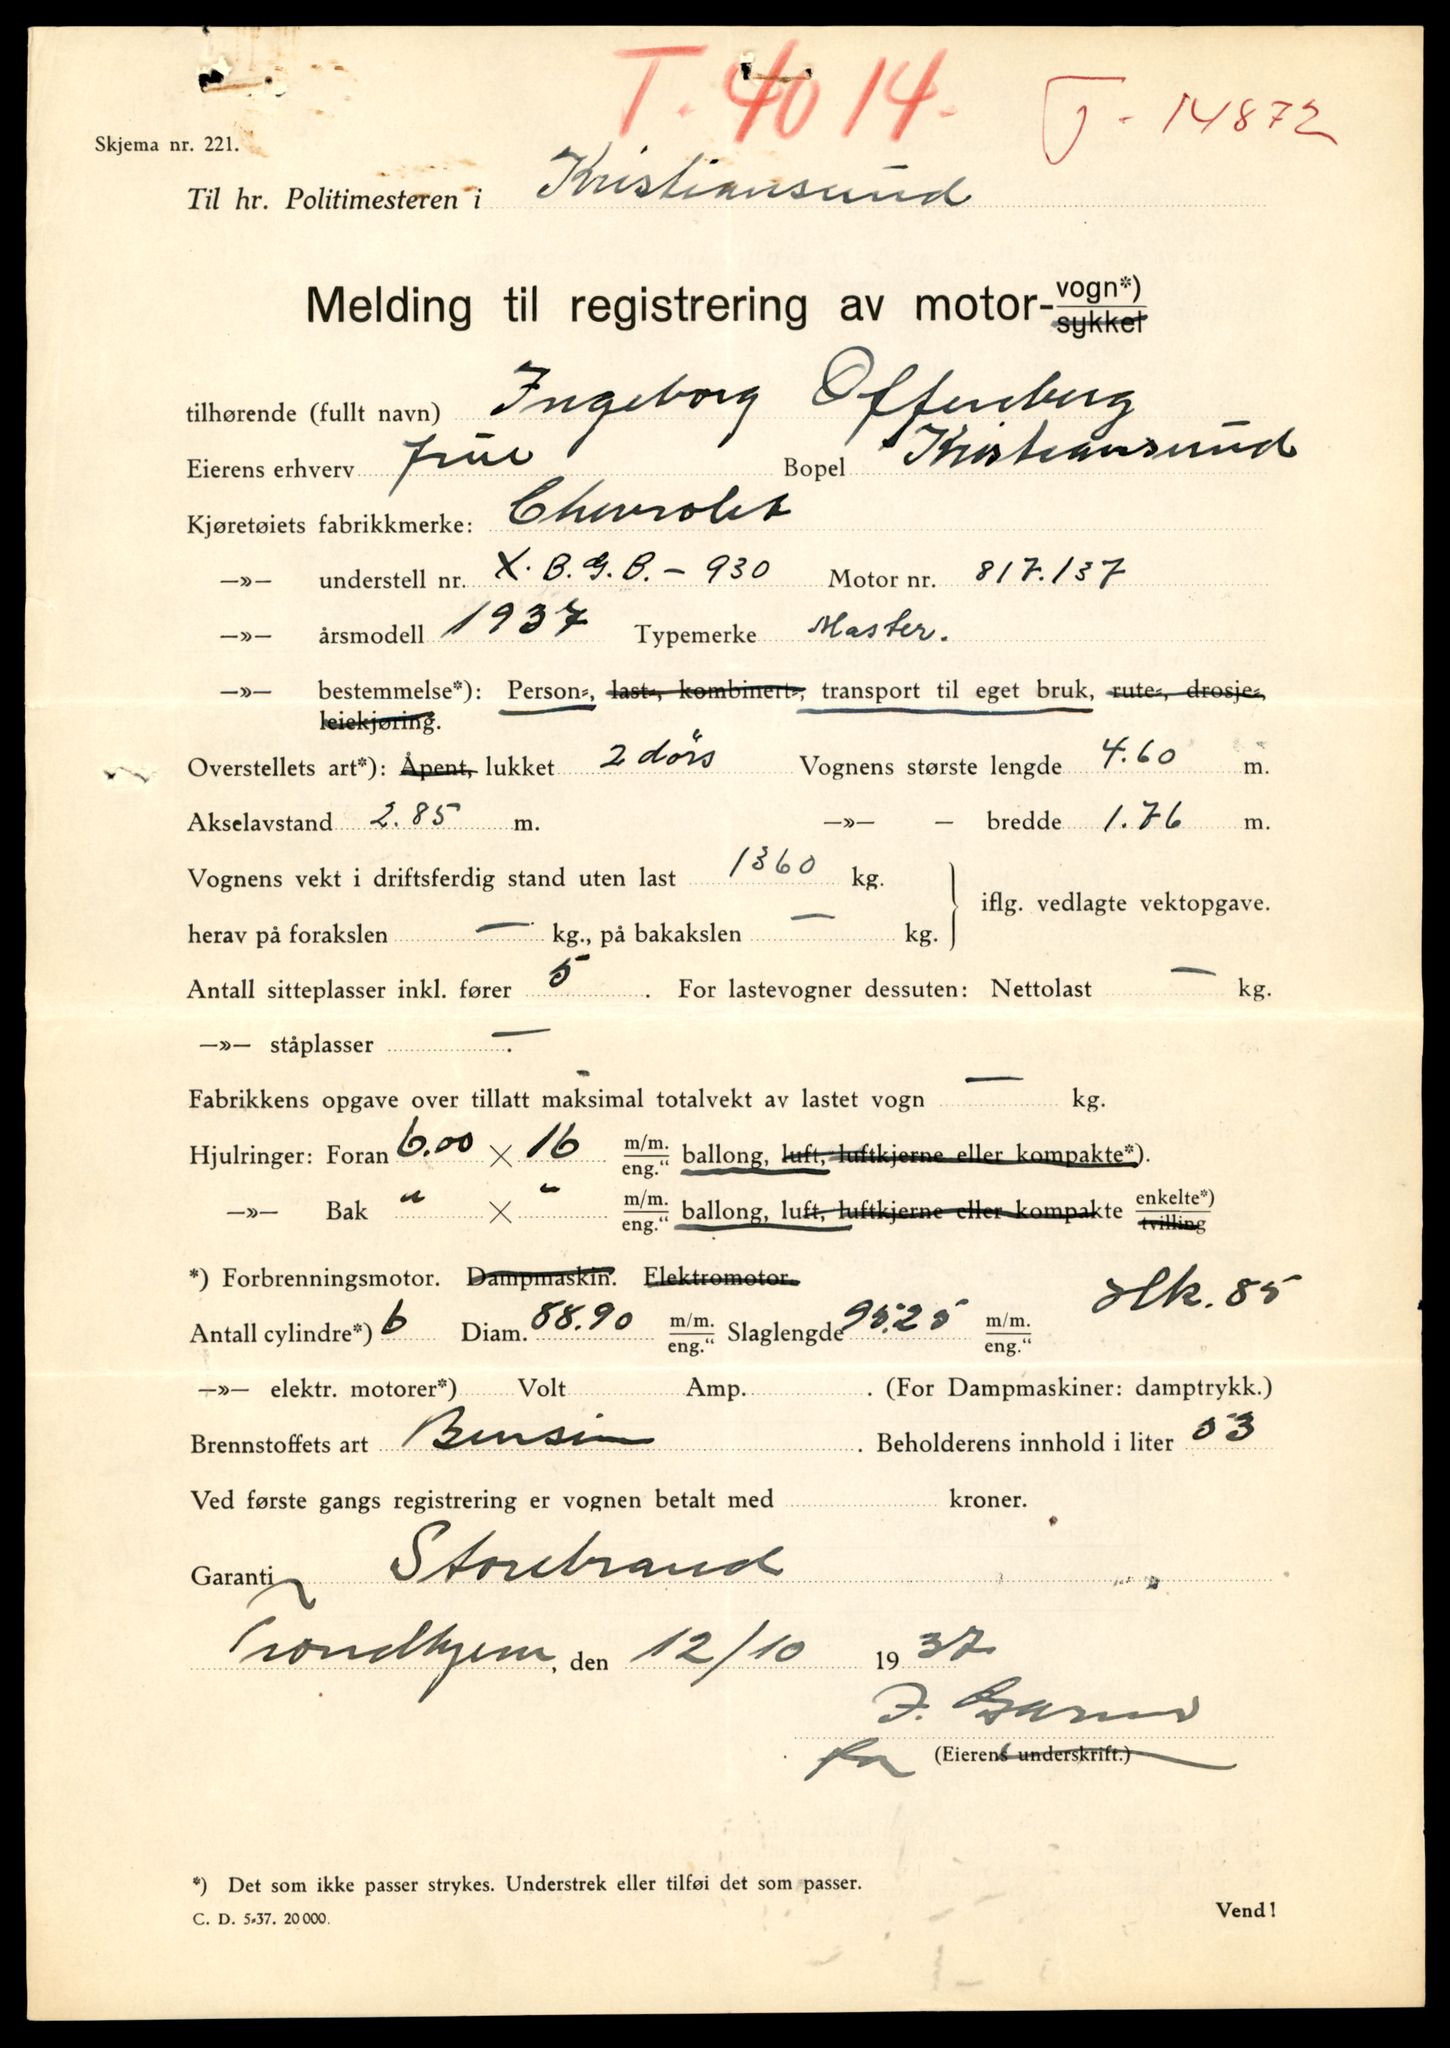 T. 4014.
T - 14872
Skjema nr. 221.
Til hr. Politimesteren i Kristiansund
Melding til registrering av motor-vogn*) sykkel
tilhørende (fullt navn) Ingeborg Offenberg
Eierens erhverv frue Bopel Kristiansund
Kjøretøiets fabrikkmerke: Chevrolet
—»— understell nr. X.B.G.B. - 930 Motor nr. 817.137
—»— årsmodell 1937 Typemerke Master.
—»— bestemmelse*): Person-, last-, kombinert-, transport til eget bruk, rute-, drosje-,
leiekjøring.
Overstellets art*): Åpent, lukket 2 dörs Vognens største lengde 4.60 m.
Akselavstand 2.85 m. —»— — bredde 1.76 m.
Vognens vekt i driftsferdig stand uten last 1360 kg.
iflg. vedlagte vektopgave.
herav på forakslen — kg., på bakakslen — kg.
Antall sitteplasser inkl. fører 5. For lastevogner dessuten: Nettolast — kg.
—»— ståplasser —.
Fabrikkens opgave over tillatt maksimal totalvekt av lastet vogn — kg.
Hjulringer: Foran 6.00 × 16 m/m. eng." ballong, luft, luftkjerne eller kompakte*).
—»— Bak " × " m/m. eng." ballong, luft, luftkjerne eller kompakte enkelte*) tvilling
*) Forbrenningsmotor. Dampmaskin. Elektromotor.
Hk. 85
Antall cylindre*) 6 Diam. 88.90 m/m. eng." Slaglengde 95.25 m/m. eng."
—»— elektr. motorer*) Volt Amp. . (For Dampmaskiner: damptrykk.)
Brennstoffets art Bensin . Beholderens innhold i liter 53
Ved første gangs registrering er vognen betalt med kroner.
Garanti Storebrand
Trondhjem, den 12/10 1937
(Eierens underskrift.)
*) Det som ikke passer strykes. Understrek eller tilføi det som passer.
C. D. 5-37. 20 000.
Vend!